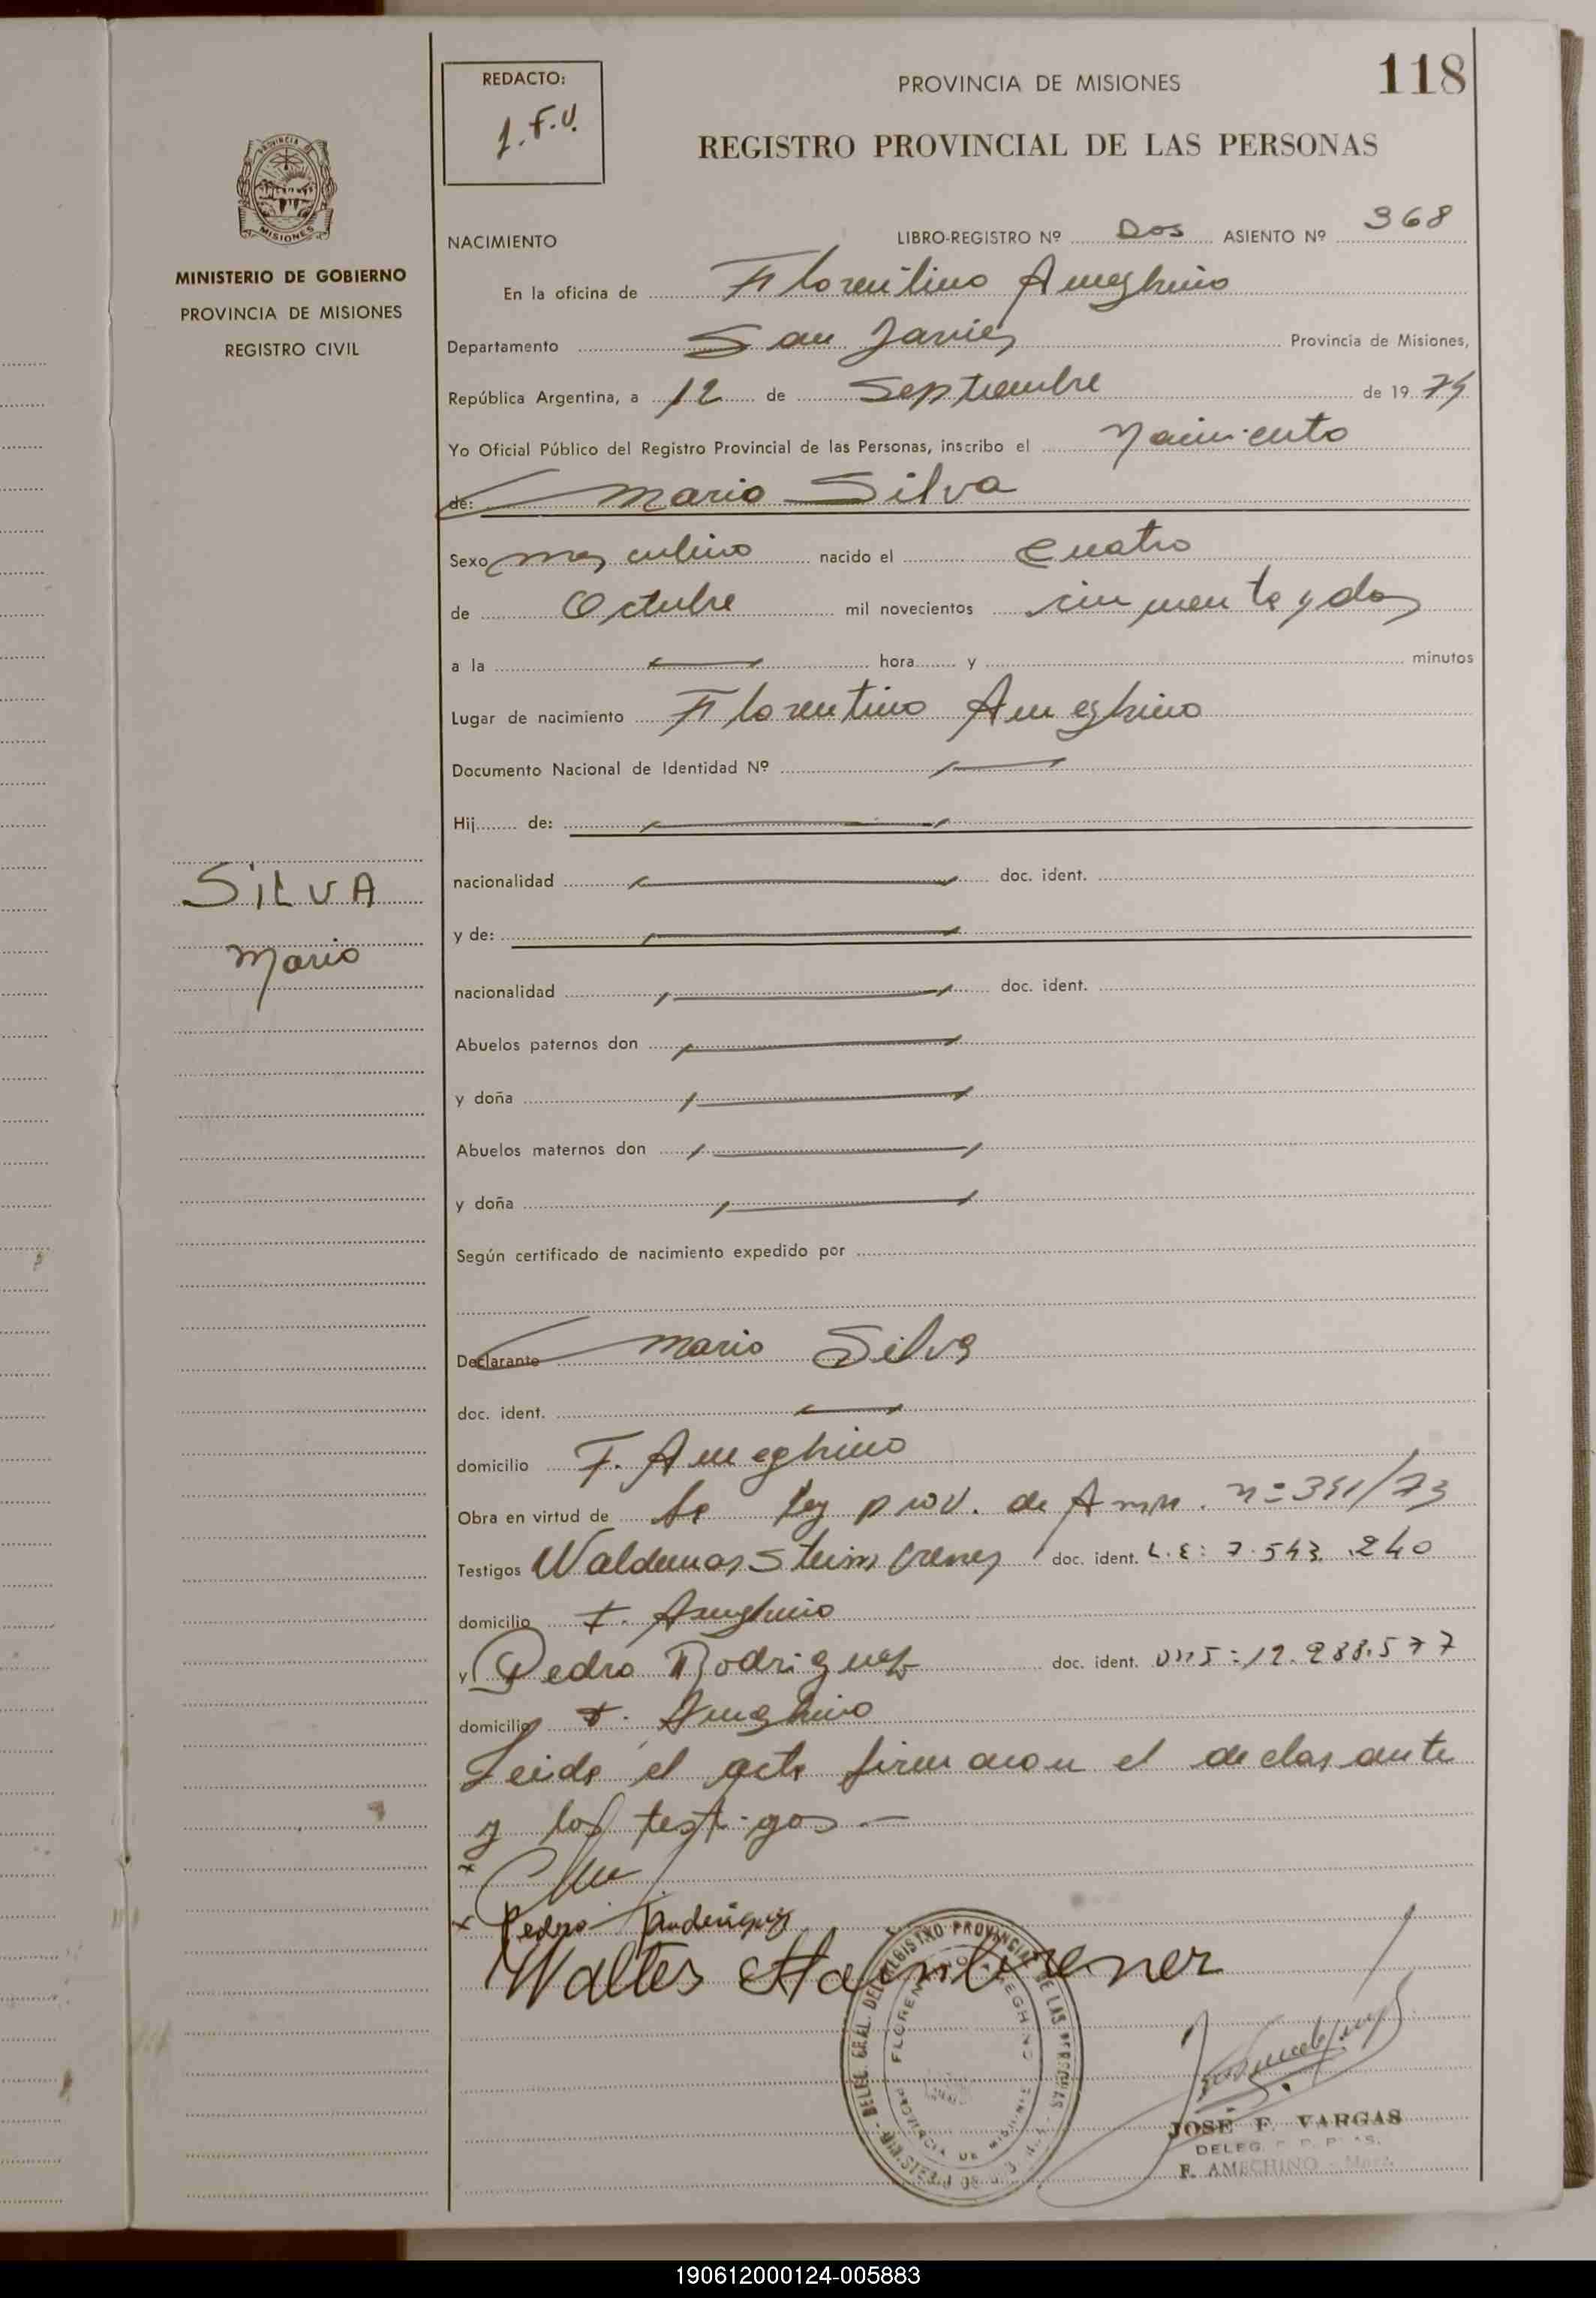 118
REDACTO:
J.F.V.
PROVINCIA DE MISIONES
REGISTRO PROVINCIAL DE LAS PERSONAS
PROVINCIA DE
MISIONES
MINISTERIO DE GOBIERNO
PROVINCIA DE MISIONES
REGISTRO CIVIL
NACIMIENTO LIBRO-REGISTRO Nº Dos ASIENTO Nº 368
En la oficina de Florentino Ameghino
Departamento San Javier Provincia de Misiones,
República Argentina, a 12 de Septiembre de 19
Yo Oficial Público del Registro Provincial de las Personas, inscribo el Nacimiento
de: Mario Silva
Sexo masculino nacido el cuatro
de Octubre mil novecientos cincuenta y dos
a la hora y minutos
Lugar de nacimiento Florentino Ameghino
Documento Nacional de Identidad Nº
Hij de:
SILVA
Mario
nacionalidad doc. ident.
y de:
nacionalidad doc. ident.
Abuelos paternos don
y doña
Abuelos maternos don
y doña
Según certificado de nacimiento expedido por
Declarante Mario Silva
doc. ident.
domicilio F. Ameghino
Obra en virtud de la Ley prov. de Amn. nº 391/73
Testigos Waldemar doc. ident. L.E: 7.543.240
domicilio F. Ameghino
y Pedro Rodriguez doc. ident. DNI=12.988.577
domicilio F. Ameghino
Leida el acta firmaron el declarante
y los testigos —
Pedro
Walter
DELEG. GRAL. DEL REGISTRO PROVINCIAL DE LAS PERSONAS
FLORENTINO AMEGHINO
PROVINCIA DE MISIONES
JOSÉ F. VARGAS
DELEG.
F. AMEGHINO - Mnes.
190612000124-005883